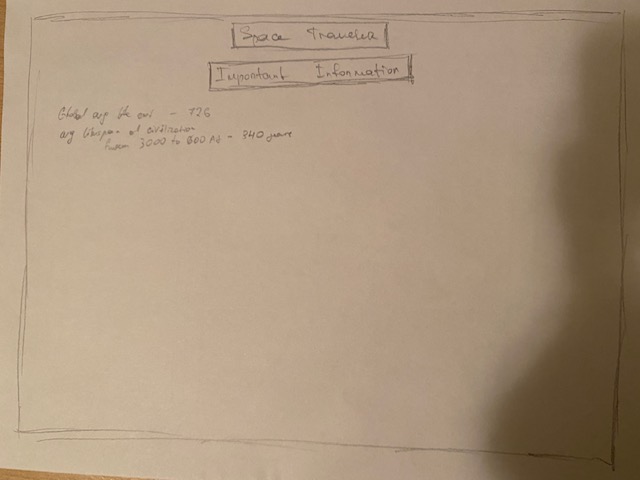 Space
Important Information
Global avg life - 726
avg lifespan of civilization
from 3000 to 600 AD - 340 years